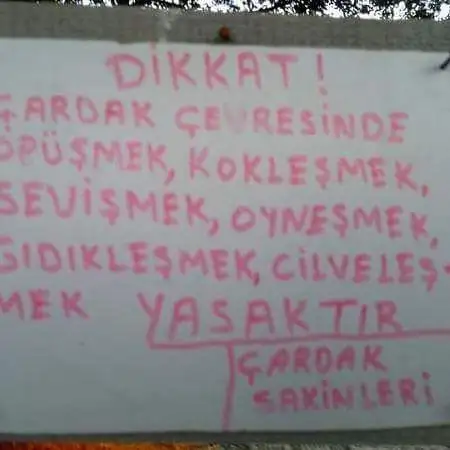 DİKKAT!
ÇARDAK ÇEVRESİNDE
ÖPÜŞMEK, KOKLEŞMEK,
SEVİŞMEK, OYNEŞMEK,
GIDIKLEŞMEK, CİLVELEŞ-
MEK YASAKTIR
ÇARDAK
SAKİNLERİ